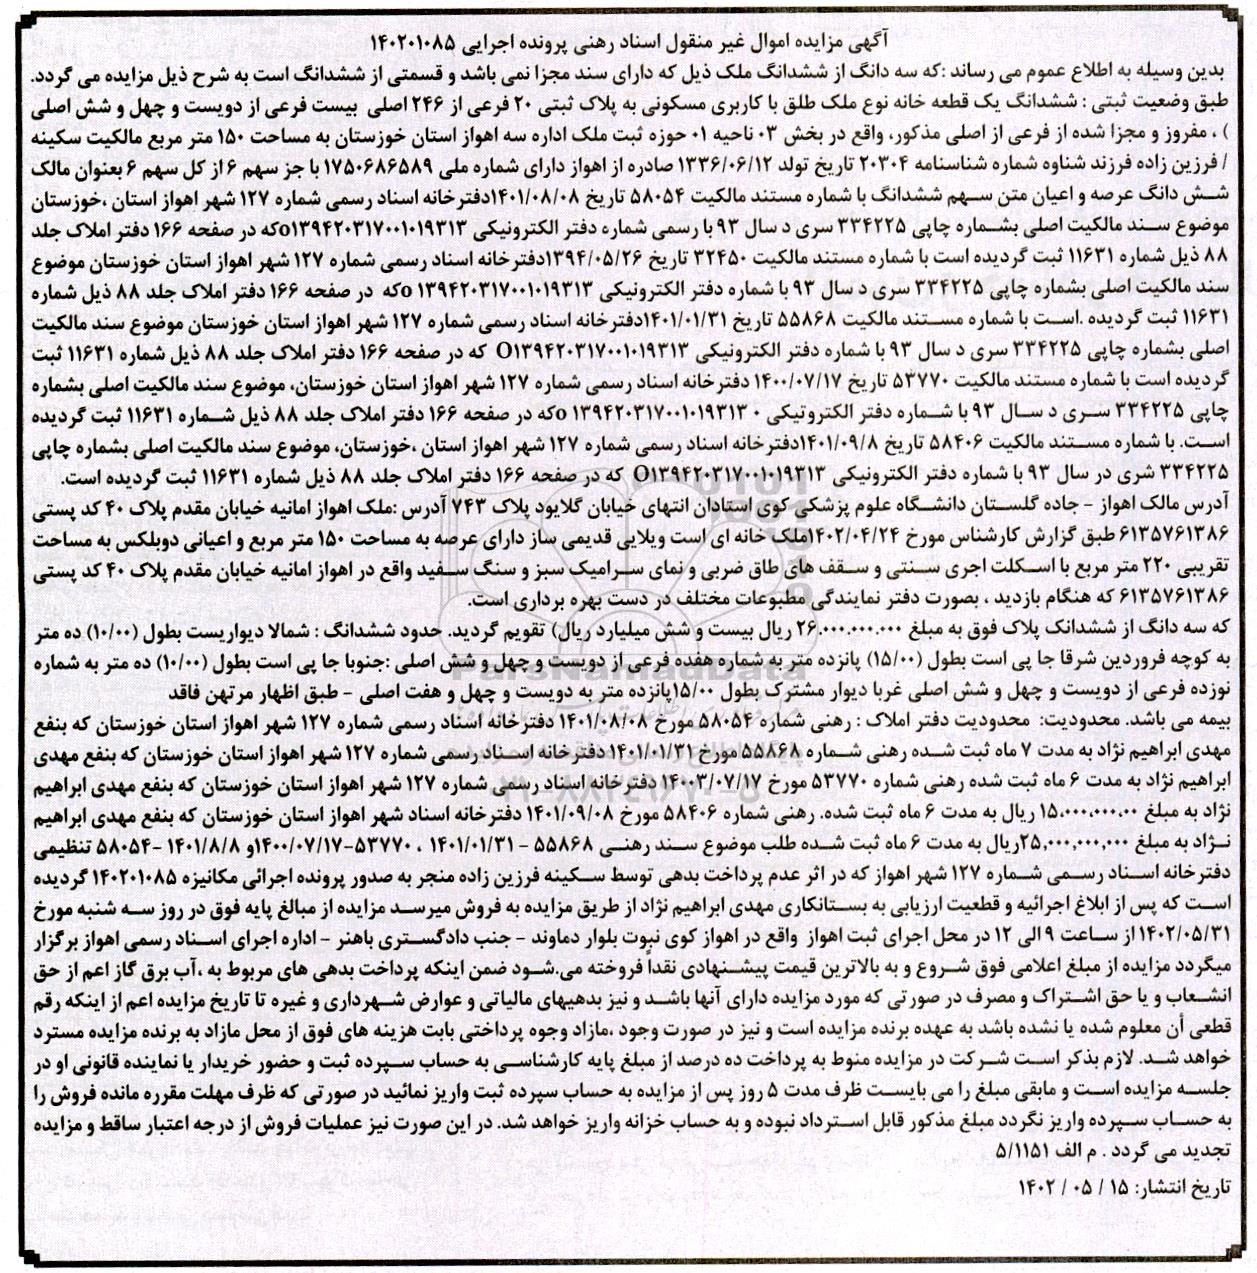 آگهی مزایده اموال غیر منقول اسناد رهنی پرونده اجرایی ۱۴۰۲۰۱۰۸۵
بدین وسیله به اطلاع عموم می رساند :که سه دانگ از ششدانگ ملک ذیل که دارای سند مجزا نمی باشد و قسمتی از ششدانگ است به شرح ذیل مزایده می گردد.
طبق وضعیت ثبتی : ششدانگ یک قطعه خانه نوع ملک طلق با کاربری مسکونی به پلاک ثبتی ۲۰ فرعی از ۲۴۶ اصلی بیست فرعی از دویست و چهل و شش اصلی
) ، مفروز و مجزا شده از فرعی از اصلی مذکور، واقع در بخش ۰۳ ناحیه ۰۱ حوزه ثبت ملک اداره سه اهواز استان خوزستان به مساحت ۱۵۰ متر مربع مالکیت سکینه
/ فرزین زاده فرزند شناوه شماره شناسنامه ۲۰۳۰۴ تاریخ تولد ۱۳۳۶/۰۶/۱۲ صادره از اهواز دارای شماره ملی ۱۷۵۰۶۸۶۵۸۹ با جز سهم ۶ از کل سهم ۶ بعنوان مالک
شش دانگ عرصه و اعیان متن سهم ششدانگ با شماره مستند مالکیت ۵۸۰۵۴ تاریخ ۱۴۰۱/۰۸/۰۸دفترخانه اسناد رسمی شماره ۱۲۷ شهر اهواز استان ،خوزستان
موضوع سند مالکیت اصلی بشماره چاپی ۳۳۴۲۲۵ سری د سال ۹۳ با رسمی شماره دفتر الکترونیکی ۱۳۹۴۲۰۳۱۷۰۰۱۰۱۹۳۱۳oکه در صفحه ۱۶۶ دفتر املاک جلد
۸۸ ذیل شماره ۱۱۶۳۱ ثبت گردیده است با شماره مستند مالکیت ۳۲۴۵۰ تاریخ ۱۳۹۴/۰۵/۲۶دفترخانه اسناد رسمی شماره ۱۲۷ شهر اهواز استان خوزستان موضوع
سند مالکیت اصلی بشماره چاپی ۳۳۴۲۲۵ سری د سال ۹۳ با شماره دفتر الکترونیکی ۱۳۹۴۲۰۳۱۷۰۰۱۰۱۹۳۱۳ oکه در صفحه ۱۶۶ دفتر املاک جلد ۸۸ ذیل شماره
۱۱۶۳۱ ثبت گردیده .است با شماره مستند مالکیت ۵۵۸۶۸ تاریخ ۱۴۰۱/۰۱/۳۱دفترخانه اسناد رسمی شماره ۱۲۷ شهر اهواز استان خوزستان موضوع سند مالکیت
اصلی بشماره چاپی ۳۳۴۲۲۵ سری د سال ۹۳ با شماره دفتر الکترونیکی ۱۳۹۴۲۰۳۱۷۰۰۱۰۱۹۳۱۳O که در صفحه ۱۶۶ دفتر املاک جلد ۸۸ ذیل شماره ۱۱۶۳۱ ثبت
گردیده است با شماره مستند مالکیت ۵۳۷۷۰ تاریخ ۱۴۰۰/۰۷/۱۷ دفترخانه اسناد رسمی شماره ۱۲۷ شهر اهواز استان خوزستان، موضوع سند مالکیت اصلی بشماره
چاپی ۳۳۴۲۲۵ سری د سال ۹۳ با شماره دفتر الکترونیکی ۰ ۱۳۹۴۲۰۳۱۷۰۰۱۰۱۹۳۱۳ oکه در صفحه ۱۶۶ دفتر املاک جلد ۸۸ ذیل شماره ۱۱۶۳۱ ثبت گردیده
است. با شماره مستند مالکیت ۵۸۴۰۶ تاریخ ۱۴۰۱/۰۹/۸دفترخانه اسناد رسمی شماره ۱۲۷ شهر اهواز استان ،خوزستان، موضوع سند مالکیت اصلی بشماره چاپی
۳۳۴۲۲۵ شری در سال ۹۳ با شماره دفتر الکترونیکی ۱۳۹۴۲۰۳۱۷۰۰۱۰۱۹۳۱۳O که در صفحه ۱۶۶ دفتر املاک جلد ۸۸ ذیل شماره ۱۱۶۳۱ ثبت گردیده است.
آدرس مالک اهواز - جاده گلستان دانشگاه علوم پزشکی کوی استادان انتهای خیابان گلایود پلاک ۷۴۳ آدرس :ملک اهواز امانیه خیابان مقدم پلاک ۴۰ کد پستی
۶۱۳۵۷۶۱۳۸۶ طبق گزارش کارشناس مورخ ۱۴۰۲/۰۴/۲۴ملک خانه ای است ویلایی قدیمی ساز دارای عرصه به مساحت ۱۵۰ متر مربع و اعیانی دوبلکس به مساحت
تقریبی ۲۲۰ متر مربع با اسکلت اجری سنتی و سقف های طاق ضربی و نمای سرامیک سبز و سنگ سفید واقع در اهواز امانیه خیابان مقدم پلاک ۴۰ کد پستی
۶۱۳۵۷۶۱۳۸۶ که هنگام بازدید ، بصورت دفتر نمایندگی مطبوعات مختلف در دست بهره برداری است.
که سه دانگ از ششدانک پلاک فوق به مبلغ ۲۶.۰۰۰.۰۰۰.۰۰۰ ریال بیست و شش میلیارد ریال) تقویم گردید. حدود ششدانگ : شمالا دیواریست بطول (۱۰/۰۰) ده متر
به کوچه فروردین شرقا جا پی است بطول (۱۵/۰۰) پانزده متر به شماره هفده فرعی از دویست و چهل و شش اصلی :جنوبا جا پی است بطول (۱۰/۰۰) ده متر به شماره
نوزده فرعی از دویست و چهل و شش اصلی غربا دیوار مشترک بطول ۱۵/۰۰پانزده متر به دویست و چهل و هفت اصلی - طبق اظهار مرتهن فاقد
بیمه می باشد. محدودیت: محدودیت دفتر املاک : رهنی شماره ۵۸۰۵۴ مورخ ۱۴۰۱/۰۸/۰۸ دفترخانه اسناد رسمی شماره ۱۲۷ شهر اهواز استان خوزستان که بنفع
مهدی ابراهیم نژاد به مدت ۷ ماه ثبت شده رهنی شماره ۵۵۸۶۸ مورخ ۱۴۰۱/۰۱/۳۱ دفترخانه اسناد رسمی شماره ۱۲۷ شهر اهواز استان خوزستان که بنفع مهدی
ابراهیم نژاد به مدت ۶ ماه ثبت شده رهنی شماره ۵۳۷۷۰ مورخ ۱۴۰۳/۰۷/۱۷ دفترخانه اسناد رسمی شماره ۱۲۷ شهر اهواز استان خوزستان که بنفع مهدی ابراهیم
نژاد به مبلغ ۱۵،۰۰۰،۰۰۰.۰۰ ریال به مدت ۶ ماه ثبت شده. رهنی شماره ۵۸۴۰۶ مورخ ۱۴۰۱/۰۹/۰۸ دفترخانه اسناد شهر اهواز استان خوزستان که بنفع مهدی ابراهیم
نژاد به مبلغ ۲۵,۰۰۰,۰۰۰,۰۰۰ریال به مدت ۶ ماه ثبت شده طلب موضوع سند رهنی ۵۵۸۶۸ - ۱۴۰۱/۰۱/۳۱ ، ۵۳۷۷۰-۱۴۰۰/۰۷/۱۷و ۱۴۰۱/۸/۸ -۵۸۰۵۴ تنظیمی
دفترخانه اسناد رسمی شماره ۱۲۷ شهر اهواز که در اثر عدم پرداخت بدهی توسط سکینه فرزین زاده منجر به صدور پرونده اجرائی مکانیزه ۱۴۰۲۰۱۰۸۵ گردیده
است که پس از ابلاغ اجرائیه و قطعیت ارزیابی به بستانکاری مهدی ابراهیم نژاد از طریق مزایده به فروش میرسد مزایده از مبالغ پایه فوق در روز سه شنبه مورخ
۱۴۰۲/۰۵/۳۱ از ساعت ۹ الی ۱۲ در محل اجرای ثبت اهواز واقع در اهواز کوی نبوت بلوار دماوند - جنب دادگستری باهنر - اداره اجرای اسناد رسمی اهواز برگزار
میگردد مزایده از مبلغ اعلامی فوق شروع و به بالاترین قیمت پیشنهادی نقداً فروخته می.شود ضمن اینکه پرداخت بدهی های مربوط به ،آب برق گاز اعم از حق
انشعاب و یا حق اشتراک و مصرف در صورتی که مورد مزایده دارای آنها باشد و نیز بدهیهای مالیاتی و عوارض شهرداری و غیره تا تاریخ مزایده اعم از اینکه رقم
قطعی أن معلوم شده یا نشده باشد به عهده برنده مزایده است و نیز در صورت وجود ،مازاد وجوه پرداختی بابت هزینه های فوق از محل مازاد به برنده مزایده مسترد
خواهد شد. لازم بذکر است شرکت در مزایده منوط به پرداخت ده درصد از مبلغ پایه کارشناسی به حساب سپرده ثبت و حضور خریدار یا نماینده قانونی او در
جلسه مزایده است و مابقی مبلغ را می بایست ظرف مدت ۵ روز پس از مزایده به حساب سپرده ثبت واریز نمائید در صورتی که ظرف مهلت مقرره مانده فروش را
به حساب سپرده واریز نگردد مبلغ مذکور قابل استرداد نبوده و به حساب خزانه واریز خواهد شد. در این صورت نیز عملیات فروش از درجه اعتبار ساقط و مزایده
تجدید می گردد . م الف ۵/۱۱۵۱
تاریخ انتشار: ۱۵ / ۰۵ / ۱۴۰۲
ParsNamadData